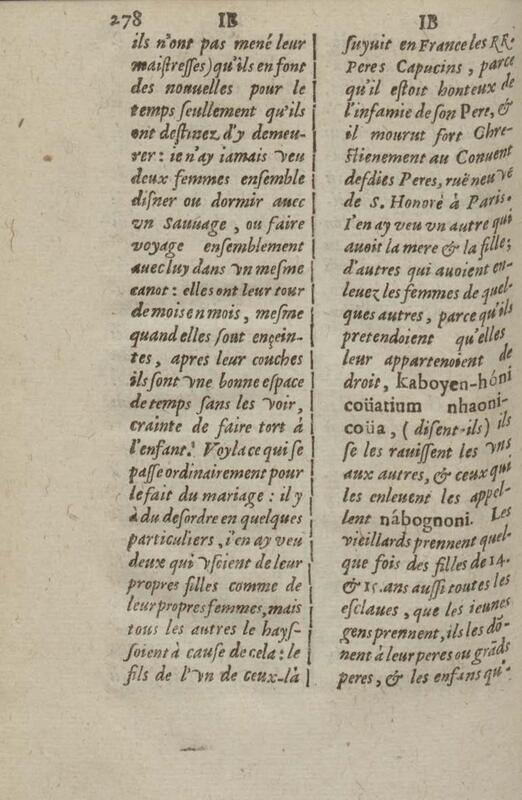 278 IB IB
ils n'ont pas mené leur
maistresses) qu'ils en font
des nouuelles pour le
temps seullement qu'ils
ont destinez d'y demeu-
rer : ie n'ay iamais veu
deux femmes ensemble
disner ou dormir auec
vn Sauuage, ou faire
voyage ensemblement
auec luy dans vn mesme
canot : elles ont leur tour
de mois en mois, mesme
quand elles sont ençein-
tes, apres leur couches
ils sont vne bonne espace
de temps sans les voir,
crainte de faire tort à
l'enfant. Voyla ce qui se
passe ordinairement pour
le fait du mariage : il y
à du desordre en quelques
particuliers, i'en ay veu
deux qui vsoient de leur
propres filles comme de
leur propres femmes, mais
tous les autres le hays-
soient à cause de cela : le
fils de l'vn de ceux-là
suyuit en France les RR.
Peres Capucins, parce
qu'il estoit honteux de
l'infamie de son Pere, &
il mourut fort Chre-
stienement au Conuent
desdies Peres, ruë neuve
de S. Honoré à Paris.
I'en ay veu vn autre qui
auoit la mere & la fille;
d'autres qui auoient en-
leuez les femmes de quel-
ques autres, parce qu'ils
pretendoient qu'elles
leur appartenoient de
droit, kaboyen-hóni
coüatium nhaoni-
coüa, (disent-ils) ils
se les rauissent les vns
aux autres, & ceux qui
les enleuent les appel-
lent nábognoni. Les
vieillards prennent quel-
que fois des filles de 14.
& 15. ans aussi toutes les
esclaues, que les ieunes
gens prennent, ils les dõ-
nent à leur peres ou grãds
peres, & les enfans qu'-